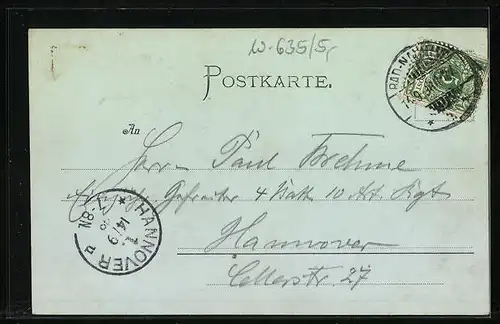 W-635/5,-
POSTKARTE.
BAD-NAUHEIM
An
Herrn Paul Brehme
Einj. Gefreiter 4 Batt. 10 Art. Rgt.
Hannover
Cellerstr. 27
HANNOVER
14/9
8-9N.